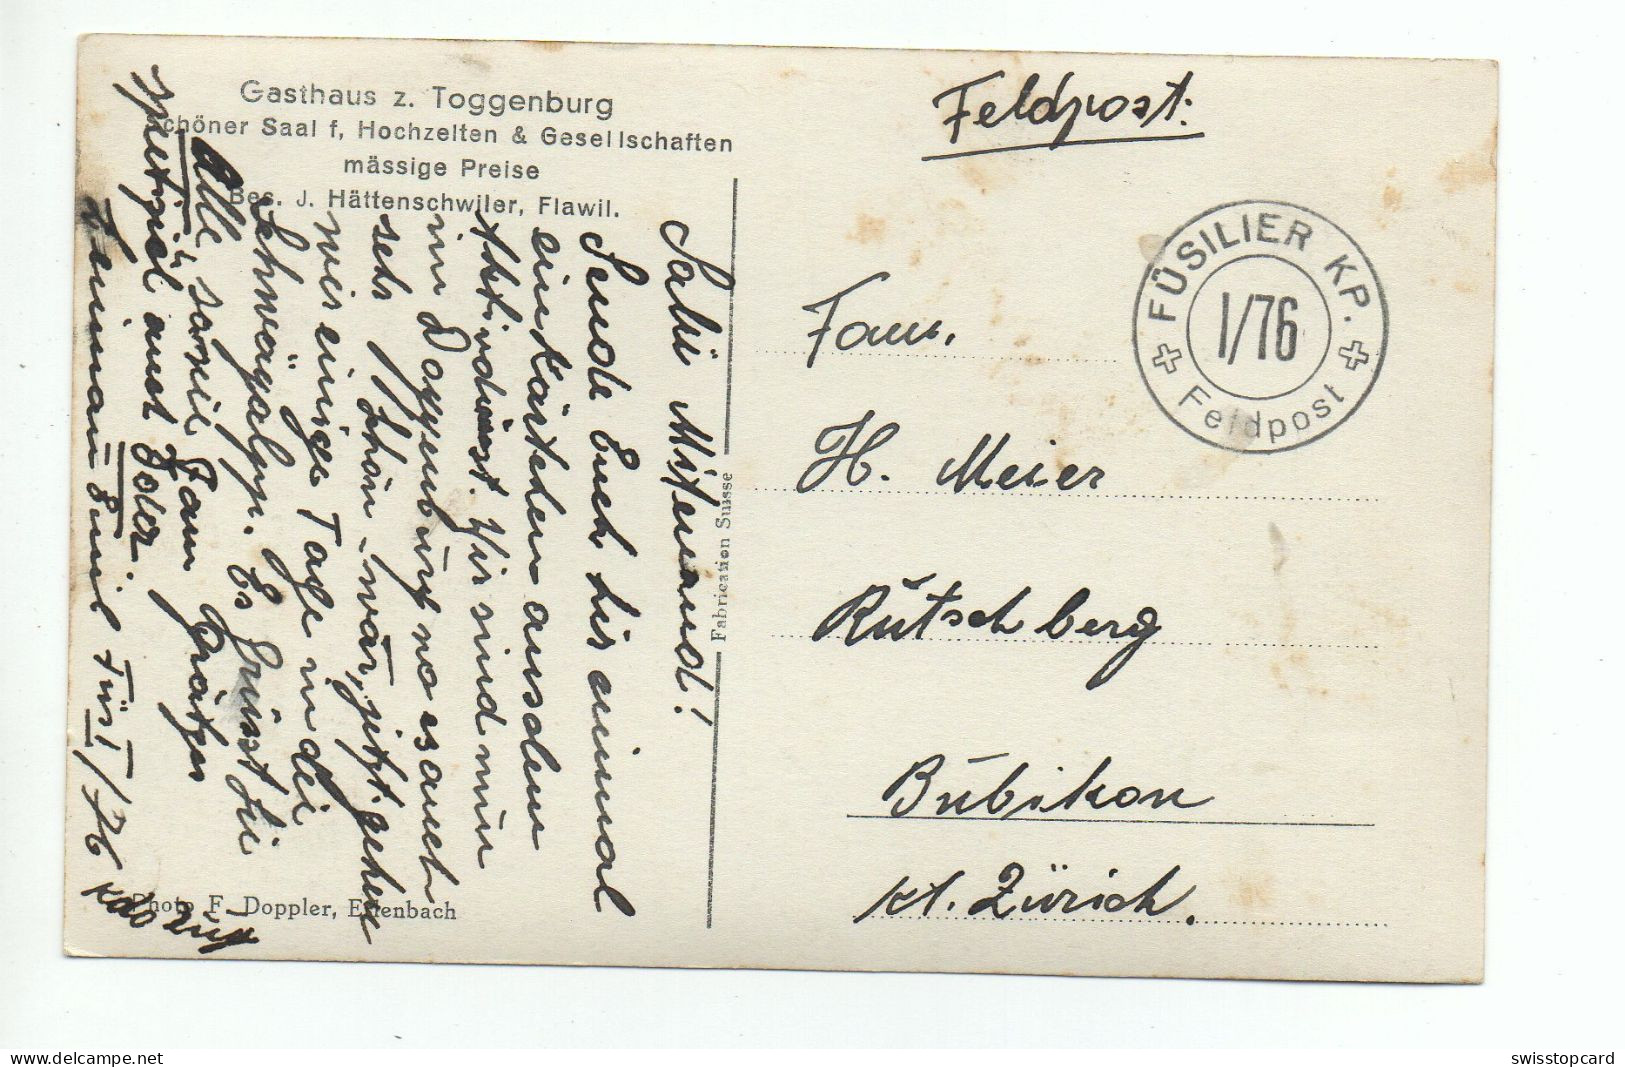 Gasthaus z. Toggenburg
chöner Saal f, Hochzeiten & Gesellschaften
mässige Preise
Bes. J. Hättenschwiler, Flawil.
Feldpost.
FÜSILIER KP.
I/76
Feldpost
Fam.
H. Meier
Rütschberg
Bubikon
Kt. Zürich.
Salü Mitenand!
Sende Euch hir einmal
ein Kärtchen aus dem
Aktivdienst. Wir sind nun
im Doggenburg wo es auch
sehr schön wär, jetzt gehen
wir einige Tage in die
Schwägalp. Es Grüsst Sie
Alle sowie Fam
speziel auch
Emil Füs I/76 Kdo Zug
Fabrication Suisse
Photo F. Doppler, Erlenbach
swisstopcard